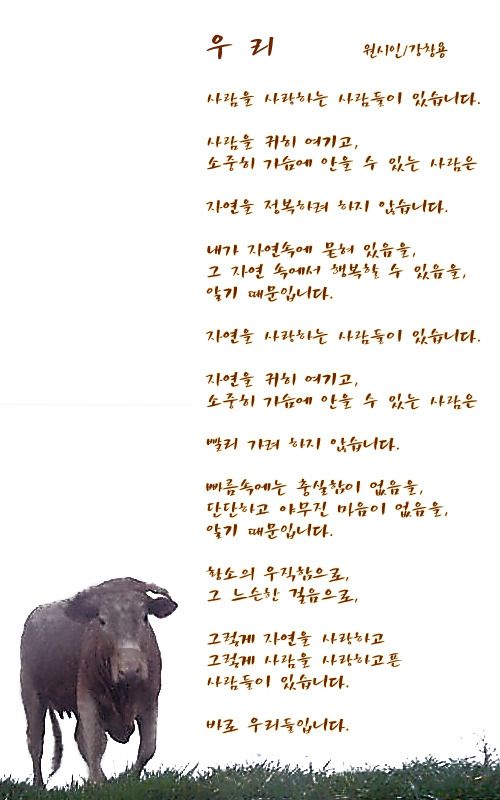 우 리
원시인/강창용
사람을 사랑하는 사람들이 있습니다.
사람을 귀히 여기고,
소중히 가슴에 안을 수 있는 사람은
자연을 정복하려 하지 않습니다.
내가 자연속에 묻혀 있음을,
그 자연 속에서 행복할 수 있음을,
알기 때문입니다.
자연을 사랑하는 사람들이 있습니다.
자연을 귀히 여기고,
소중히 가슴에 안을 수 있는 사람은
빨리 가려 하지 않습니다.
빠름속에는 충실함이 없음을,
단단하고 야무진 마음이 없음을,
알기 때문입니다.
황소의 우직함으로,
그 느슨한 걸음으로,
그렇게 자연을 사랑하고
그렇게 사람을 사랑하고픈
사람들이 있습니다.
바로 우리들입니다.